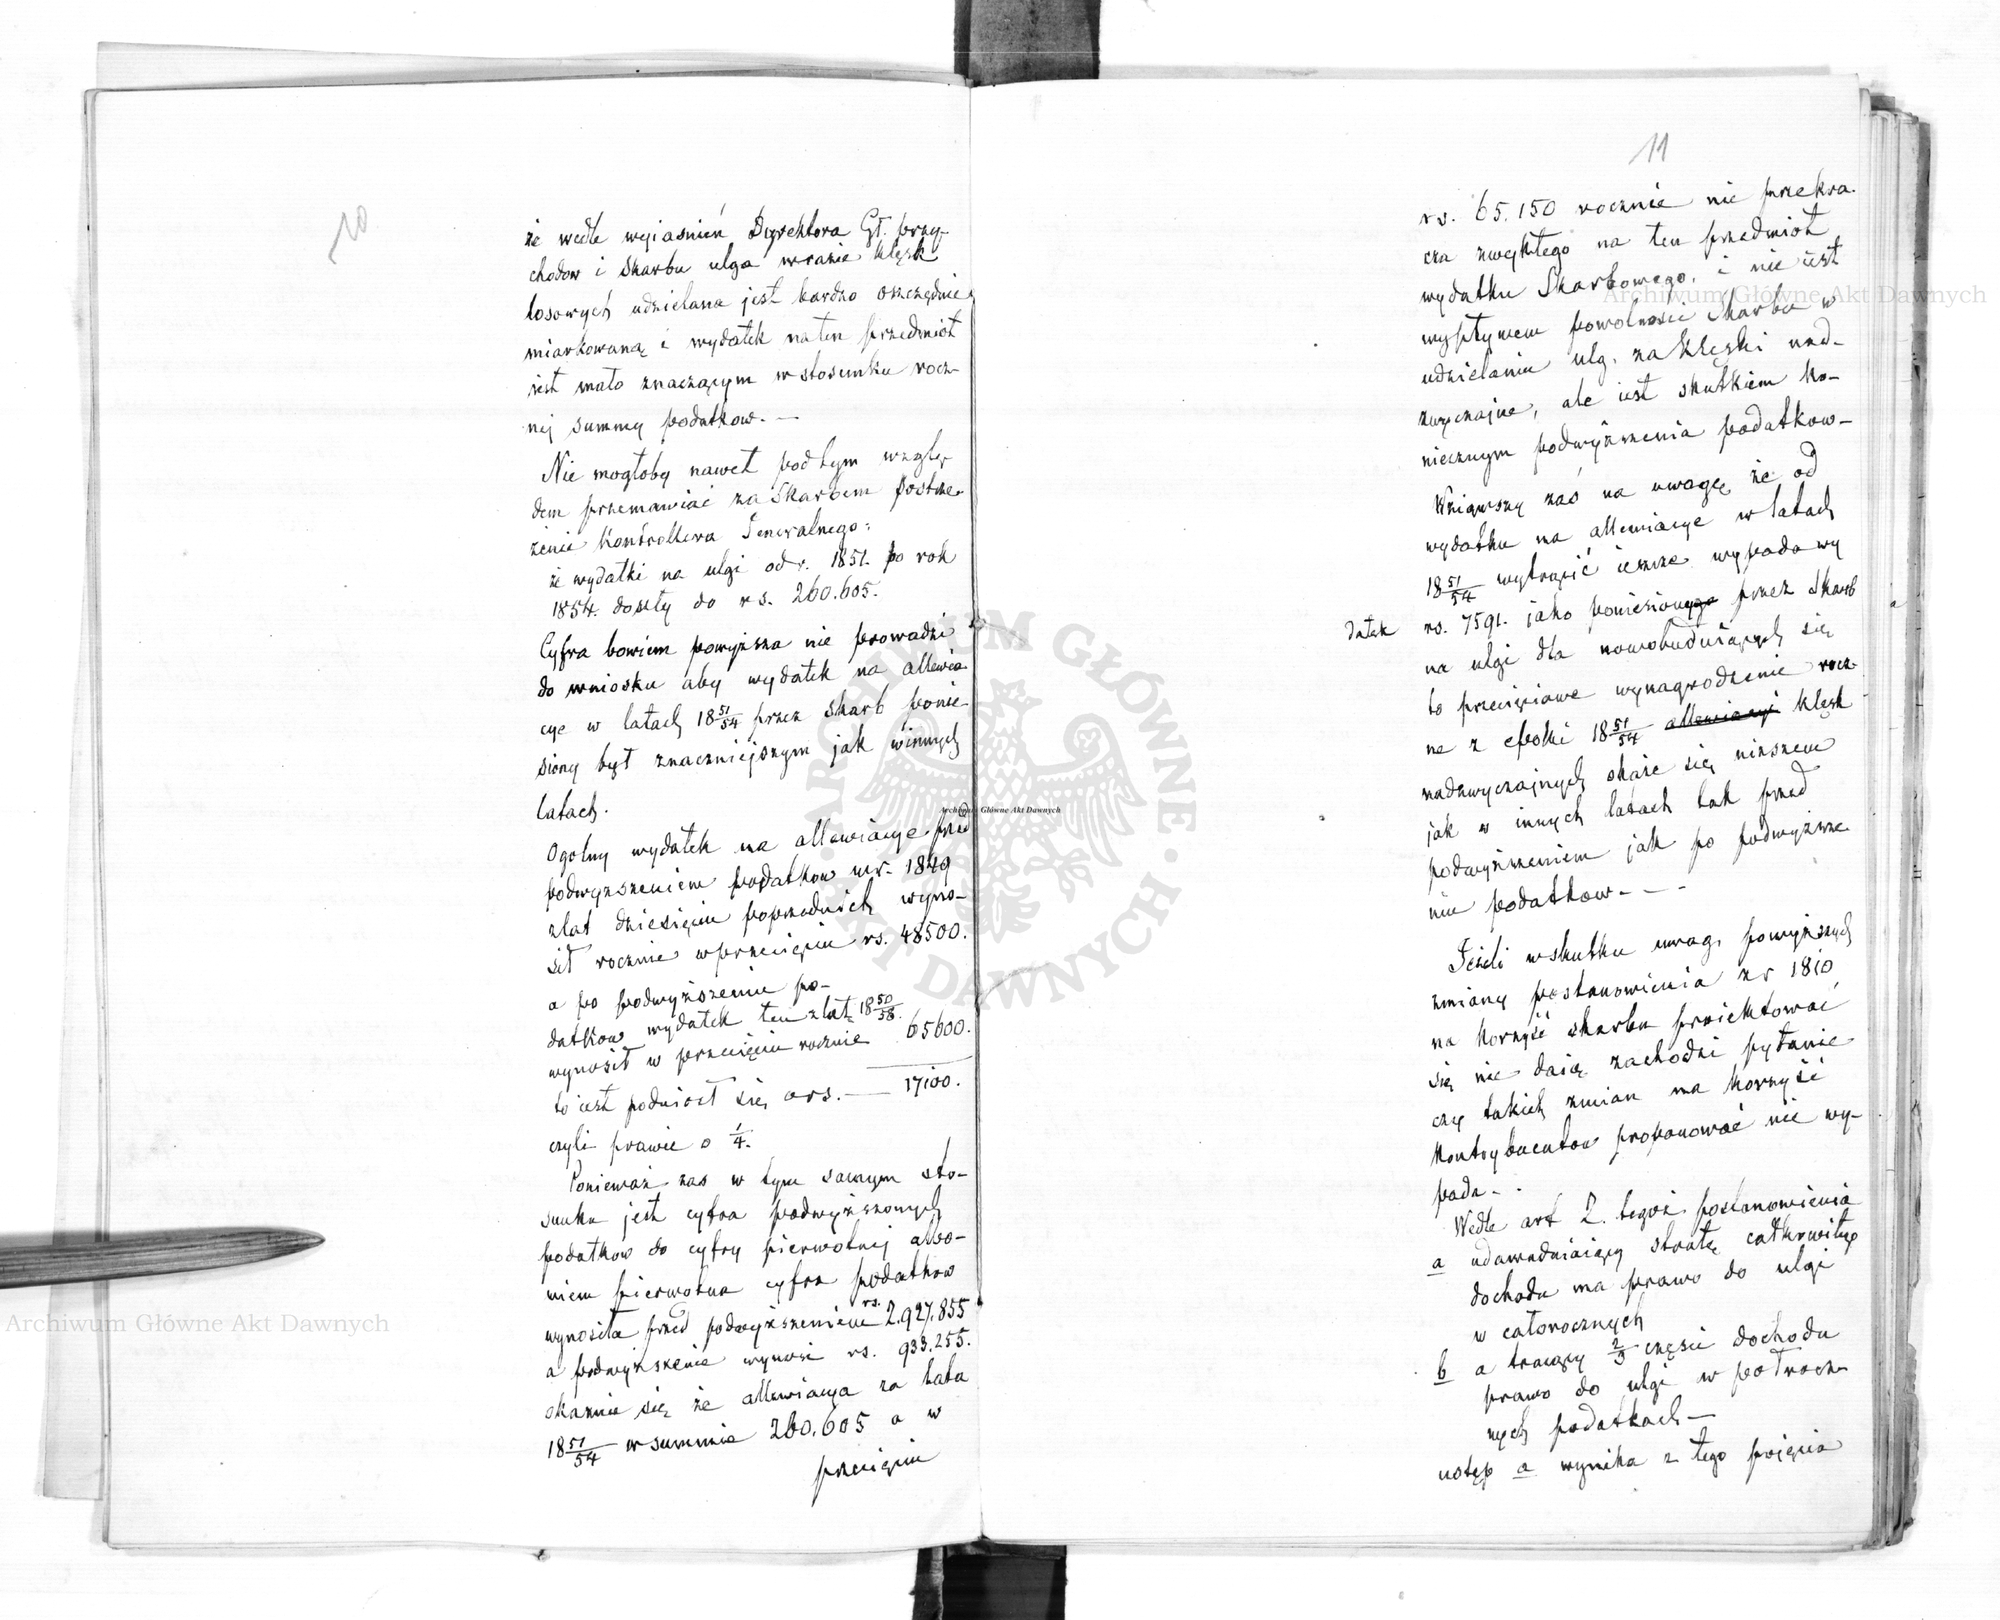 10
że wedle wyiaśnień Dyrektora Gł. przy-
chodow i Skarbu ulga wrazie klęsk
losowych udzielana jest bardzo oszczędnie
miarkowaną i wydatek na ten przedmiot
jest mało znaczącym w stosunku rocz-
nej summy podatkow. —
Nie mogłoby nawet pod tym wzglę-
dem przemawiać za Skarbem postrze-
żenie Kontrollera Generalnego:
że wydatki na ulgi od r. 1851. po rok
1854. doszły do rs. 260.605.
Cyfra bowiem powyższa nie prowadzi
do wniosku aby wydatek na allewia
cye w latach 18 51/54 przez skarb ponie-
siony był znaczniejszym jak w innych
latach.
Ogolny wydatek na allewiacye przed
podwyższeniem podatkow w r. 1849
z lat dziesięciu poprzednich wyno-
sił rocznie w przecięciu rs. 48500.
a po podwyższeniu po-
datkow wydatek ten z lat 18 50/58.
wynosił w przecięciu rocznie 65600.
to iest podniosł się o rs. — 17100.
czyli prawie o 1/4.
Ponieważ zas w tym samym sto-
sunku jest cyfra podwyższonych
podatkow do cyfry pierwotnej albo-
wiem pierwotna cyfra podatkow
wynosiła przed podwyższeniem rs. 2.927.855
a podwyższenie wynosi rs. 933.255.
okazuie się że allewiacya za lata
18 51/54 w summie 260.605 a w
przecięciu
11
rs. 65.150 rocznie nie przekra-
cza zwykłego na ten przedmiot
wydatku Skarbowego, i nie iest
wypływem powolności Skarbu w
udzielaniu ulg. za klęski nad-
zwyczajne, ale iest skutkiem ko-
niecznym podwyższenia podatkow —
Wziąwszy zaś na uwagę że od
wydatku na allewiacye w latach
18 51/54 wytrącić ieszcze wypada wy
datek rs. 7591. jako poniesiony przez Skarb
na ulgi dla nowobuduiących się
to przecięciowe wynagrodzenie rocz-
ne z epoki 18 51/54 allewiacyi klęsk
nadzwyczajnych okaże się niższem
jak w innych latach tak przed
podwyższeniem jak po podwyższe
niu podatkow — — -
Jeżeli w skutku uwag powyższych
zmiany postanowienia z r 1810
na korzyść skarbu proiektować
się nie daią zachodzi pytanie
czy takich zmian na korzyść
kontrybuentow proponować nie wy-
pada -.
Wedle art 2. tegoż postanowienia
a udawadniaiący stratę całkowitego
dochodu ma prawo do ulgi
w całorocznych
b a tracący 2/3 części dochodu
prawo do ulgi w półrocz-
nych podatkach —
ustęp a wynika z tego pojęcia
Archiwum Główne Akt Dawnych
Archiwum Główne Akt Dawnych
Archiwum Główne Akt Dawnych
ARCHIWUM GŁÓWNE AKT DAWNYCH